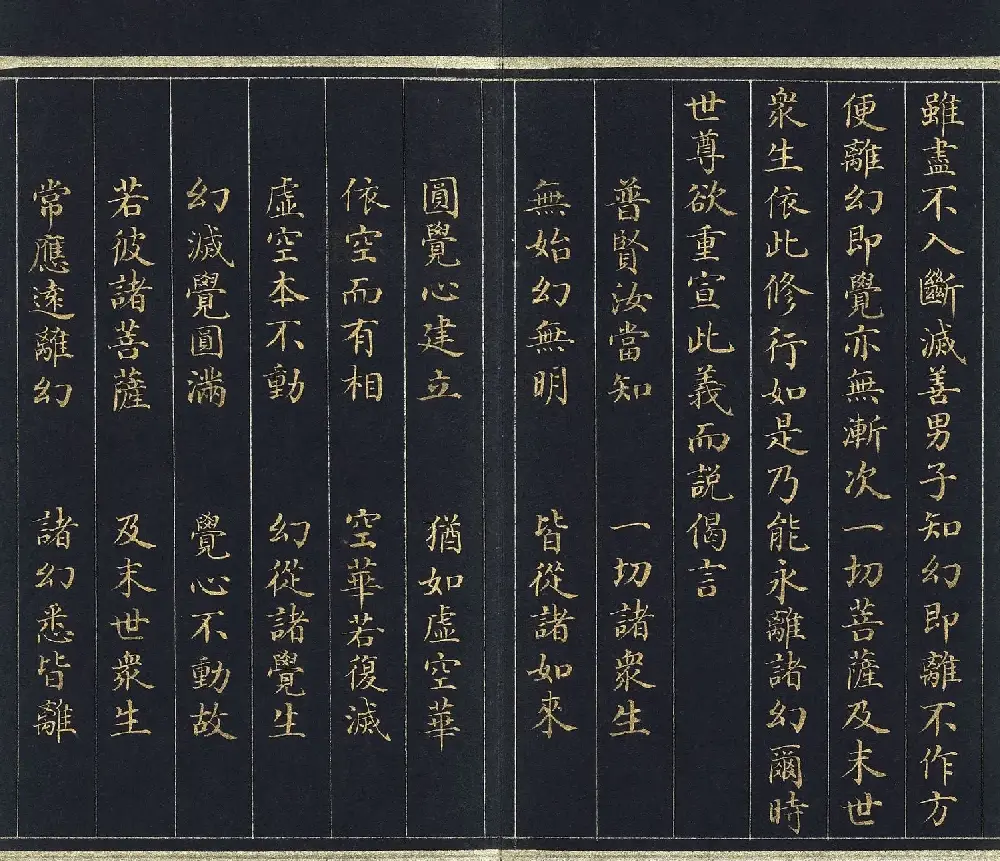 雖盡不入斷滅善男子知幻即離不作方
便離幻即覺亦無漸次一切菩薩及末世
衆生依此修行如是乃能永離諸幻爾時
世尊欲重宣此義而説偈言
普賢汝當知 一切諸衆生
無始幻無明 皆從諸如來
圓覺心建立 猶如虛空華
依空而有相 空華若復滅
虛空本不動 幻從諸覺生
幻滅覺圓滿 覺心不動故
若彼諸菩薩 及末世衆生
常應遠離幻 諸幻悉皆離